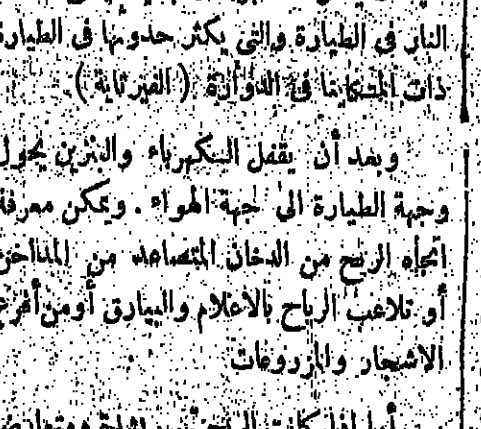 النار في الطيارة والتي يكثر حدوثها في الطيارة
ذات المتكاينا في الدوارة
وبعد أن يقفل الكهرباء والبنزين يحول
وجهة الطيارة الى جهة الهواء . ويمكن معرفة
اتجاه الريح من الدخان المتصاعد من المداخن
أو تلاعب الرياح بالاعلام والبيارق أومن أفرع
الاشجار والمزروعات